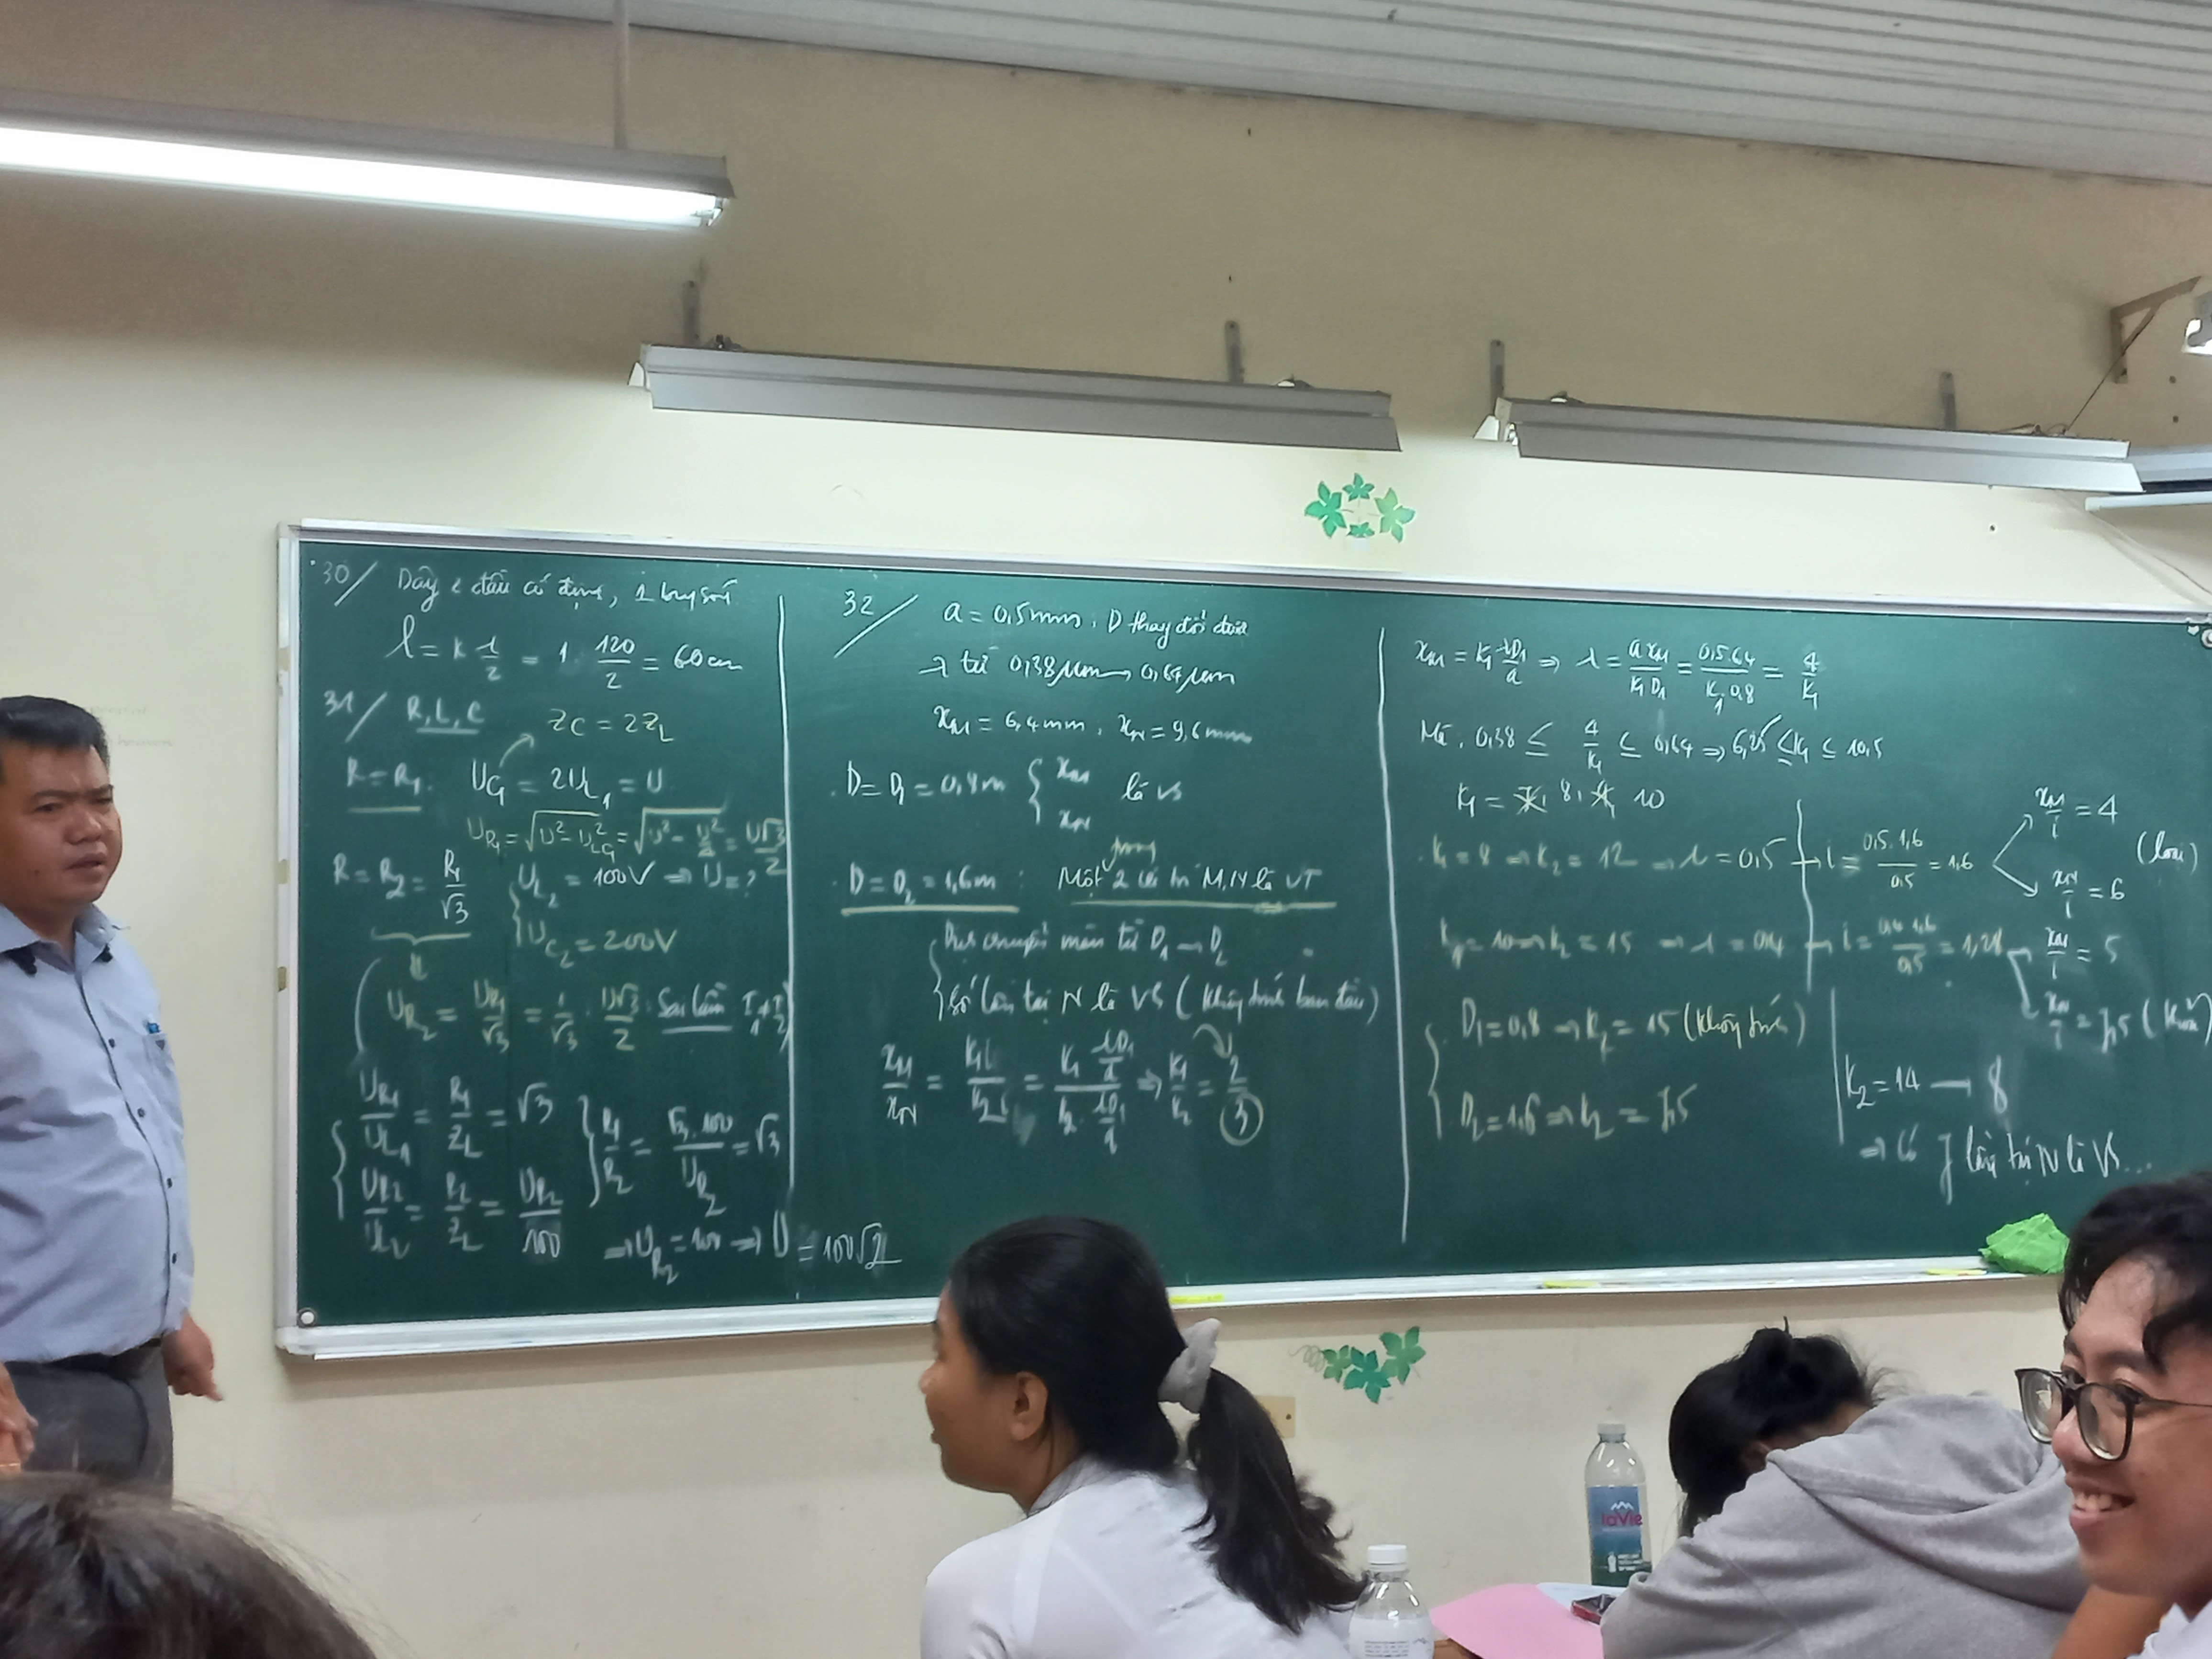 30/ Dây 2 đầu cố định, 1 bụng sóng
l = k λ/2 = 1 . 120/2 = 60 cm
31/ R, L, C ZC = 2ZL
R = R1. UC1 = 2UL1 = U
UR1 = √(U² - ULC1²) = √(U² - U²/4) = U√3/2
R = R2 = R1/√3 { UL2 = 100V ⇒ U = ?
UC2 = 200V
UR2 = UR1/√3 = 1/√3 . U√3/2 : Sai lầm I1 ≠ I2
{ UR1/UL1 = R1/ZL = √3
UR2/UL = R2/ZL = UR2/100
} R1/R2 = √3.100/UR2 = √3
⇒ UR2 = 100 ⇒ U = 100√2
32/ a = 0,5mm, D thay đổi được
λ từ 0,38μm → 0,64μm
xM = 6,4mm, xN = 9,6mm
. D = D1 = 0,8m { xM xN là VS
. D = D2 = 1,6m : Một trong 2 vị trí M, N là VT
{ Dịch chuyển màn từ D1 → D2
Số lần tại N là VS (Không tính ban đầu)
xM/xN = k1i/k2i = k1 λD1/a / k2 λD1/a ⇒ k1/k2 = 2/3
xM = k1 λD1/a ⇒ λ = a xM/k1 D1 = 0,5.6,4/k1.0,8 = 4/k1
Mà: 0,38 ≤ 4/k1 ≤ 0,64 ⇒ 6,25 ≤ k1 ≤ 10,5
k1 = 7, 8, 9, 10
. k1 = 8 ⇒ k2 = 12 ⇒ λ = 0,5 → i = 0,5.1,6/0,5 = 1,6
xM/i = 4
xN/i = 6
(loại)
k1 = 10 ⇒ k2 = 15 ⇒ λ = 0,4 → i = 0,4.1,6/0,5 = 1,28
xM/i = 5
xN/i = 7,5
{ D1 = 0,8 ⇒ k2 = 15 (Không tính)
D2 = 1,6 ⇒ k2 = 7,5
k2 = 14 → 8
⇒ Có 7 lần tại N là VS...
laVie